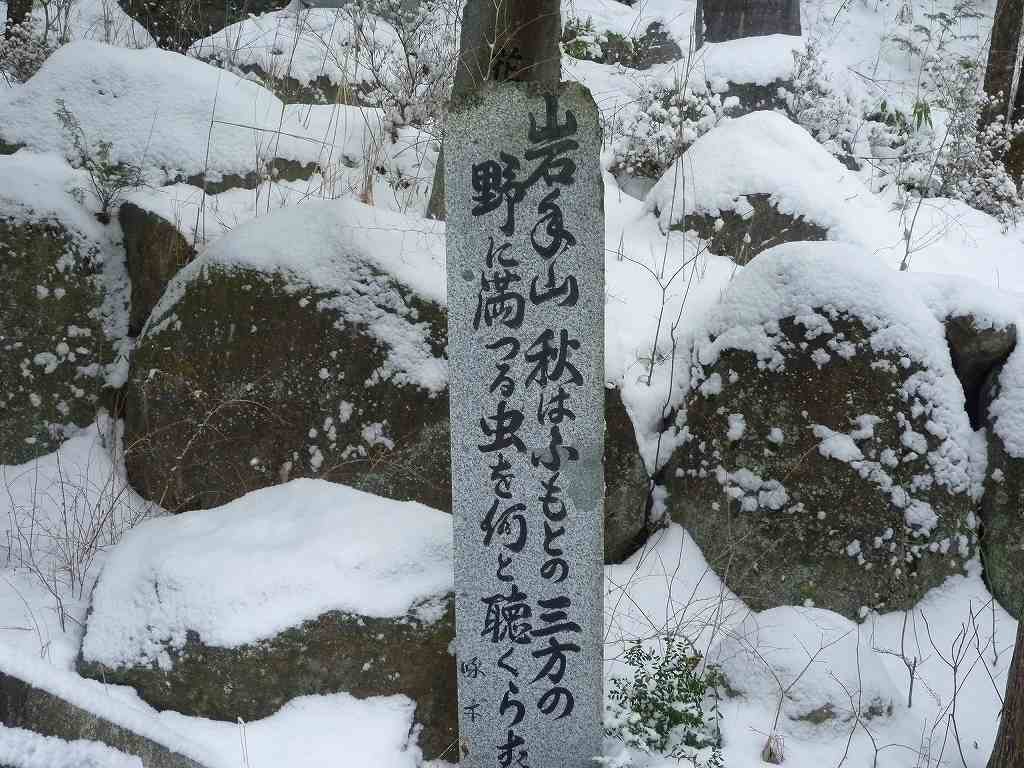 岩手山 秋はふもとの 三方の
野に満つる虫を何と聴くらむ